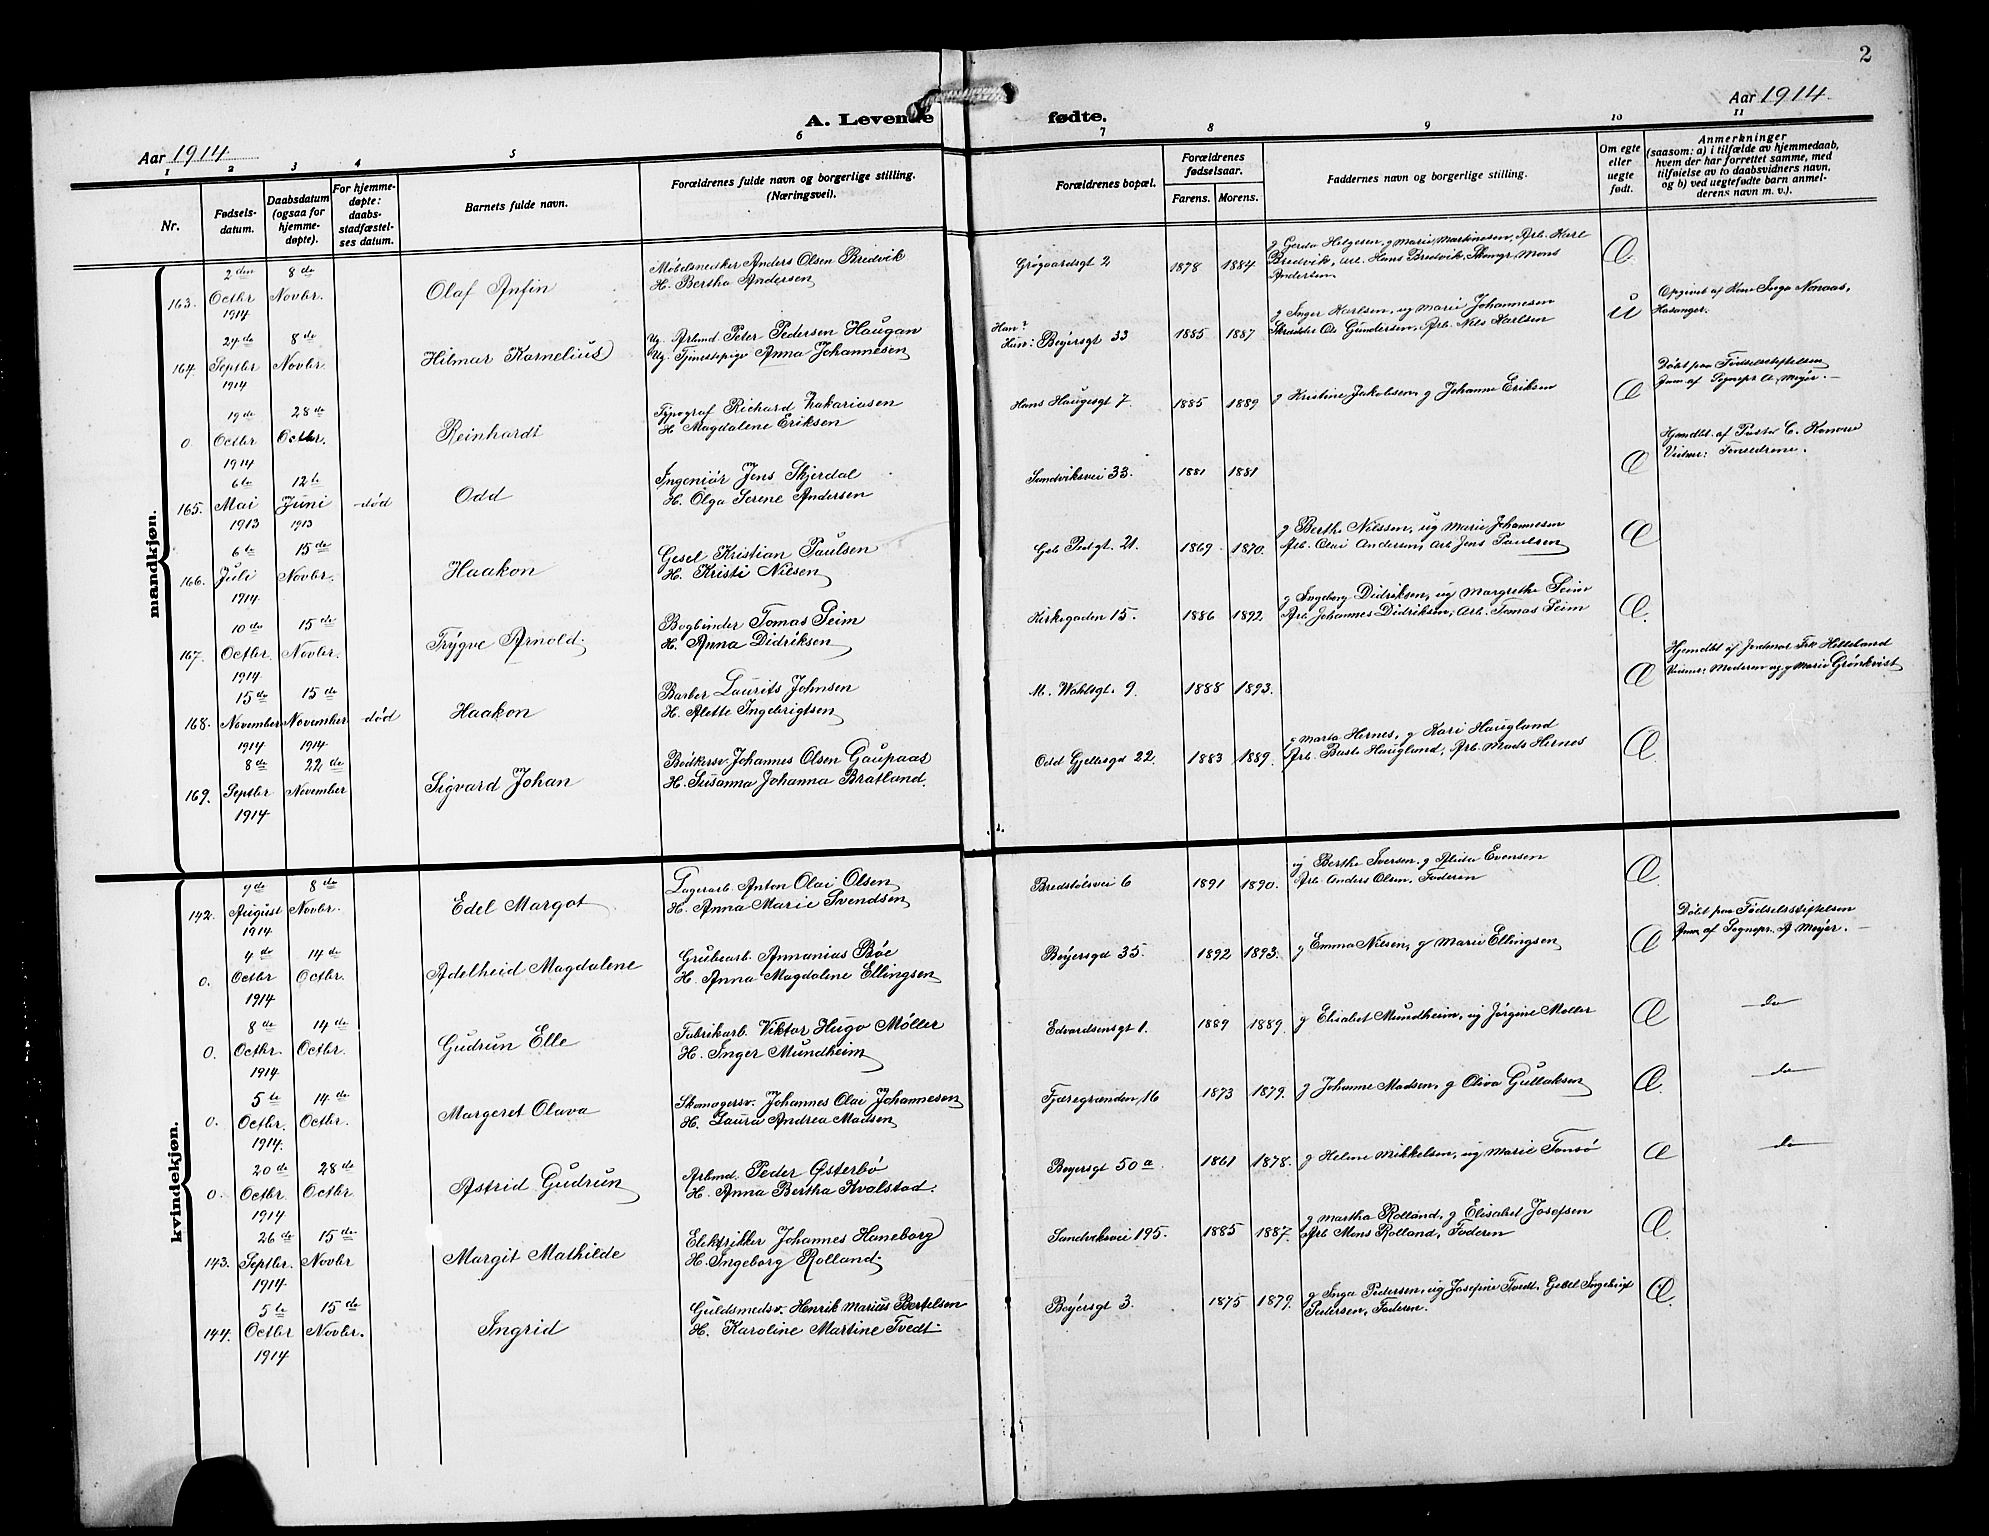 2
Aar 1914
A. Levende fødte.
Aar 1914.
1 2 3 4 5 6 7 8 9 10 11
Nr.
Fødsels-
datum.
Daabsdatum
(ogsaa for
hjemme-
døpte).
For hjemme-
døpte:
daabs-
stadfæstel-
ses datum.
Barnets fulde navn.
Forældrenes fulde navn og borgerlige stilling.
(Næringsvei).
Forældrenes bopæl.
Forældrenes
fødselsaar.
Farens. Morens.
Faddernes navn og borgerlige stilling.
Om egte
eller
uegte
født.
Anmerkninger
(saasom: a) i tilfælde av hjemmedaab,
hvem der har forrettet samme, med
tilføielse av to daabsvidners navn,
og b) ved uegtefødte barn anmel-
derens navn m. v.).
mandkjøn.
163.
2den
Octbr
1914
8de
Novbr.
Olaf Anfin
Møbelsnedker Anders Olsen Bredvik
H. Bertha Andersen
Grøgaardsgt 2
1878 1884
g Gerda Helgesen, g Marie Martinesen, Arb. Karl
Bredvik, Arb. Hans Bredvik, Mons
Andersen
Æ
164.
24de
Septbr
1914
8de
Novbr.
Hilmar Kornelius
Ug. Arbmd Peter Pedersen Haugan
Ug. Tjenestepige Anna Johannesen
Han?
Hun: Beyersgt 33
1885 1887
g Inger Karlsen, ug Marie Johannesen
Skrædder Gundersen, Arb. Nils Karlsen
U
Opgivet af Kone Inga Nonaas,
0.
19de
Octbr
1914
28de
Octbr.
Reinhardt
Typograf Richard Zakariasen
H. Magdalene Eriksen
Hans Haugesgt 7.
1885 1889
g Kristine Jakobsen, g Johanne Eriksen
Æ
Døbt paa Fødselsstiftelsen
Anm. af Sognepr A. Meyer.
165.
6te
Mai
1913
12te
Juni
1913
død
Odd
Ingeniør Jens Skjerdal
H. Olga Serene Andersen
Sandviksvei 33.
1881 1881
Æ
Hjemdbt. af Pastor C. Konow
Vidner: Forældrene.
166.
6te
Juli
1914
15de
Novbr.
Haakon
Gesel Kristian Paulsen
H. Kristi Nielsen
21.
1869 1870.
g Berthe Nilssen, ug Marie Johannesen
Arb. Olai Andersen, Arb Jens Paulsen
Æ
167.
10de
Octbr.
1914
15de
Novbr.
Trygve Arnold
Bogbinder Tomas Seim
H. Anna Didriksen
Kirkegaden 15.
1886 1892
g Ingeborg Didriksen, ug Margrethe Seim
Arb Johannes Didriksen, Arb. Tomas Seim
Æ.
168.
15de
November
1914
15de
November
1914
død
Haakon
Barber Laurits Johnsen
H. Alette Ingebrigtsen
M. Wahlsgt. 9
1888 1893.
Æ
Hjemdbt af Jordmor Frk Helleland
Vidner: Moderen ug g Marie Grønkvist
169.
8de
Septbr
1914
22de
November
Sigvard Johan
Bødkersv. Johannes Olsen Gaupaas
H. Susanna Johanna Bratland.
Odd Gjellesgd 22
1883 1889.
g Marta Hernes, g Kari Haugland
Arb. Haugland, Arb. Mads Hernes
Æ
kvindekjøn.
142.
9de
August
1914
8de
Novbr.
Edel Margot
Lagerarb. Anton Olai Olsen
H. Anna Marie Svendsen
Bredstølsvei 6
1891 1890.
ug Berthe Iversen, g Alida Evensen
Arb. Anders Olsen, Faderen
Æ
0.
4de
Octbr
1914
14de
Octbr.
Adelheid Magdalene
Grubearb. Annanias Bøe
H. Anna Magdalene Ellingsen
Beyersgd 35.
1892 1893.
g Emma Nilsen, g Marie Ellingsen
Æ
Døbt paa Fødselsstiftelsen
Anm. af Sognepr. A Meyer.
0.
8de
Octbr.
1914
14de
Octbr.
Gudrun Elle
Fabrikarb. Viktor Hugo Møller
H. Inger Mundheim
Edvardsensgt 1.
1889 1889.
g Elisabet Mundheim, ug Jørgine Møller
Æ
do
0.
5te
Octbr.
1914.
14de
Octbr.
Margeret Olava
Skomagersv. Johannes Olai Johannesen
H. Laura Andrea Madsen
Fjæregrænden 16
1873 1879.
g Johanne Madsen, g Oliva Gullaksen
Æ.
do
0.
20de
Octbr
1914
28de
Octbr.
Astrid Gudrun
Arbmd. Peder Østerbø
H. Anna Bertha Kvalstad.
Beyersgt 50 a
1861 1878.
g Helene Mikkelsen, ug Marie Tonsø
Æ
do
143.
26de
Septbr.
1914
15de
Novbr
Margit Mathilde
Elektriker Johannes Haneborg
H. Ingeborg Rolland.
Sandviksvei 195.
1885 1887.
g Martha Rolland, g Elisabet Josefsen
Arb. Mons Rolland, Faderen
Æ.
144.
5te
Octbr
1914
15de
Novbr.
Ingrid
Guldsmedsv. Henrik Marius Bertelsen
H. Karoline Martine Tvedt.
Beyersgt 3.
1875 1879.
g Inga Pedersen, ug Josefine Tvedt, Gesel Ingebrigt
Pedersen, Faderen.
Æ.